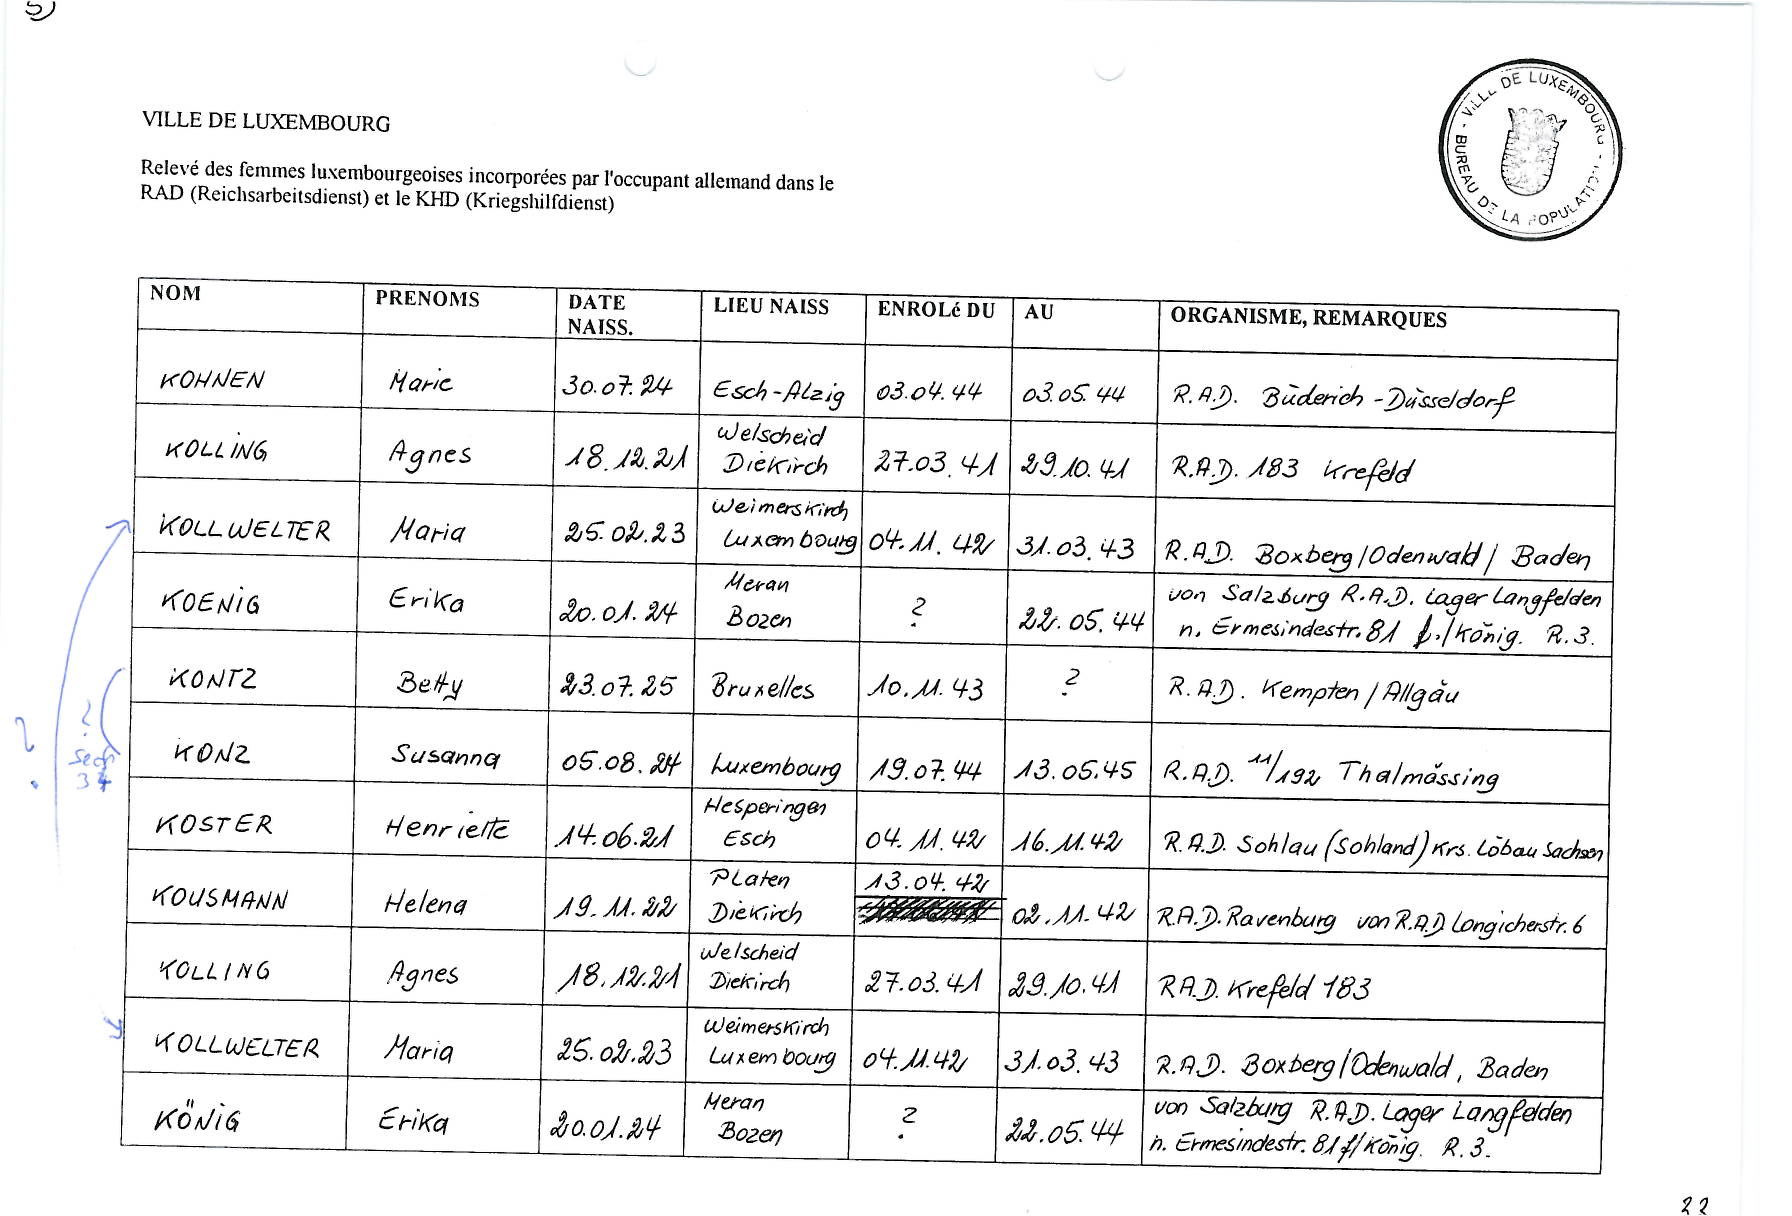 5)
VILLE DE LUXEMBOURG
Relevé des femmes luxembourgeoises incorporées par l'occupant allemand dans le
RAD (Reichsarbeitsdienst) et le KHD (Kriegshilfdienst)
- VILLE DE LUXEMBOURG - BUREAU DE LA POPULATION
NOM PRENOMS DATE NAISS. LIEU NAISS ENROLé DU AU ORGANISME, REMARQUES
KOHNEN Marie 30.07.24 Esch-Alzig 03.04.44 03.05.44 R.A.D. Büderich-Düsseldorf
KOLLING Agnes 18.12.21 Welscheid Diekirch 27.03.41 29.10.41 R.A.D. 183 Krefeld
KOLLWELTER Maria 25.02.23 Weimerskirch Luxembourg 04.11.42 31.03.43 R.A.D. Boxberg/Odenwald/ Baden
KOENIG Erika 20.01.24 Meran Bozen ? 22.05.44 von Salzburg R.A.D. Lager Langfelden
n. Ermesindestr. 81 f./König. R.3.
KONTZ Betty 23.07.25 Bruxelles 10.11.43 ? R.A.D. Kempten/Allgäu
?
?
Sech
34
KONZ Susanna 05.08.24 Luxembourg 19.07.44 13.05.45 R.A.D. 11/192 Thalmässing
KOSTER Henriette 14.06.21 Hesperingen Esch 04.11.42 16.11.42 R.A.D. Sohlau (Sohland) Krs. Löbau Sachsen
KOUSMANN Helena 19.11.22 Platen Diekirch 13.04.42 02.11.42 R.A.D. Ravenburg von R.A.D Longicherstr. 6
KOLLING Agnes 18.12.21 Welscheid Diekirch 27.03.41 29.10.41 R.A.D. Krefeld 183
KOLLWELTER Maria 25.02.23 Weimerskirch Luxembourg 04.11.42 31.03.43 R.A.D. Boxberg/Odenwald, Baden
KÖNIG Erika 20.01.24 Meran Bozen ? 22.05.44 von Salzburg R.A.D. Lager Langfelden
n. Ermesindestr. 81 f/König. R.3.
22